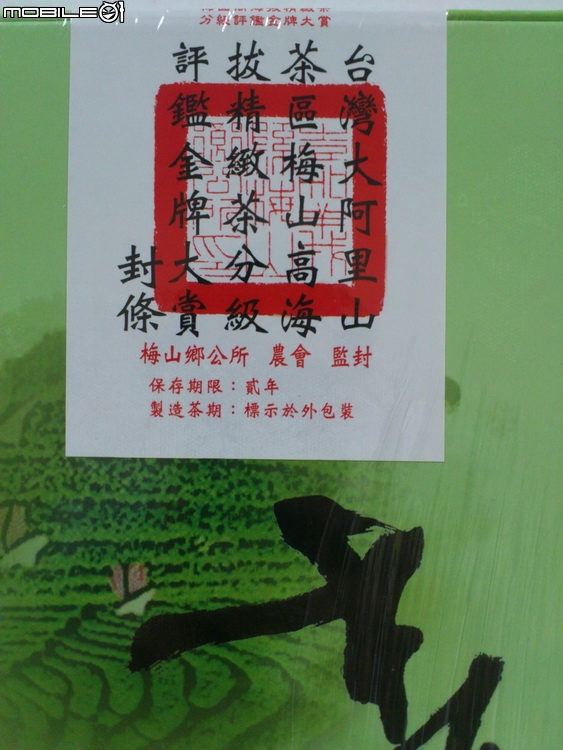 MOBILE01
分級評鑑金牌大賞
台灣大阿里山
茶區梅山高海
拔精緻茶分級
評鑑金牌大賞
封條
梅山鄉公所 農會 監封
保存期限：貳年
製造茶期：標示於外包裝